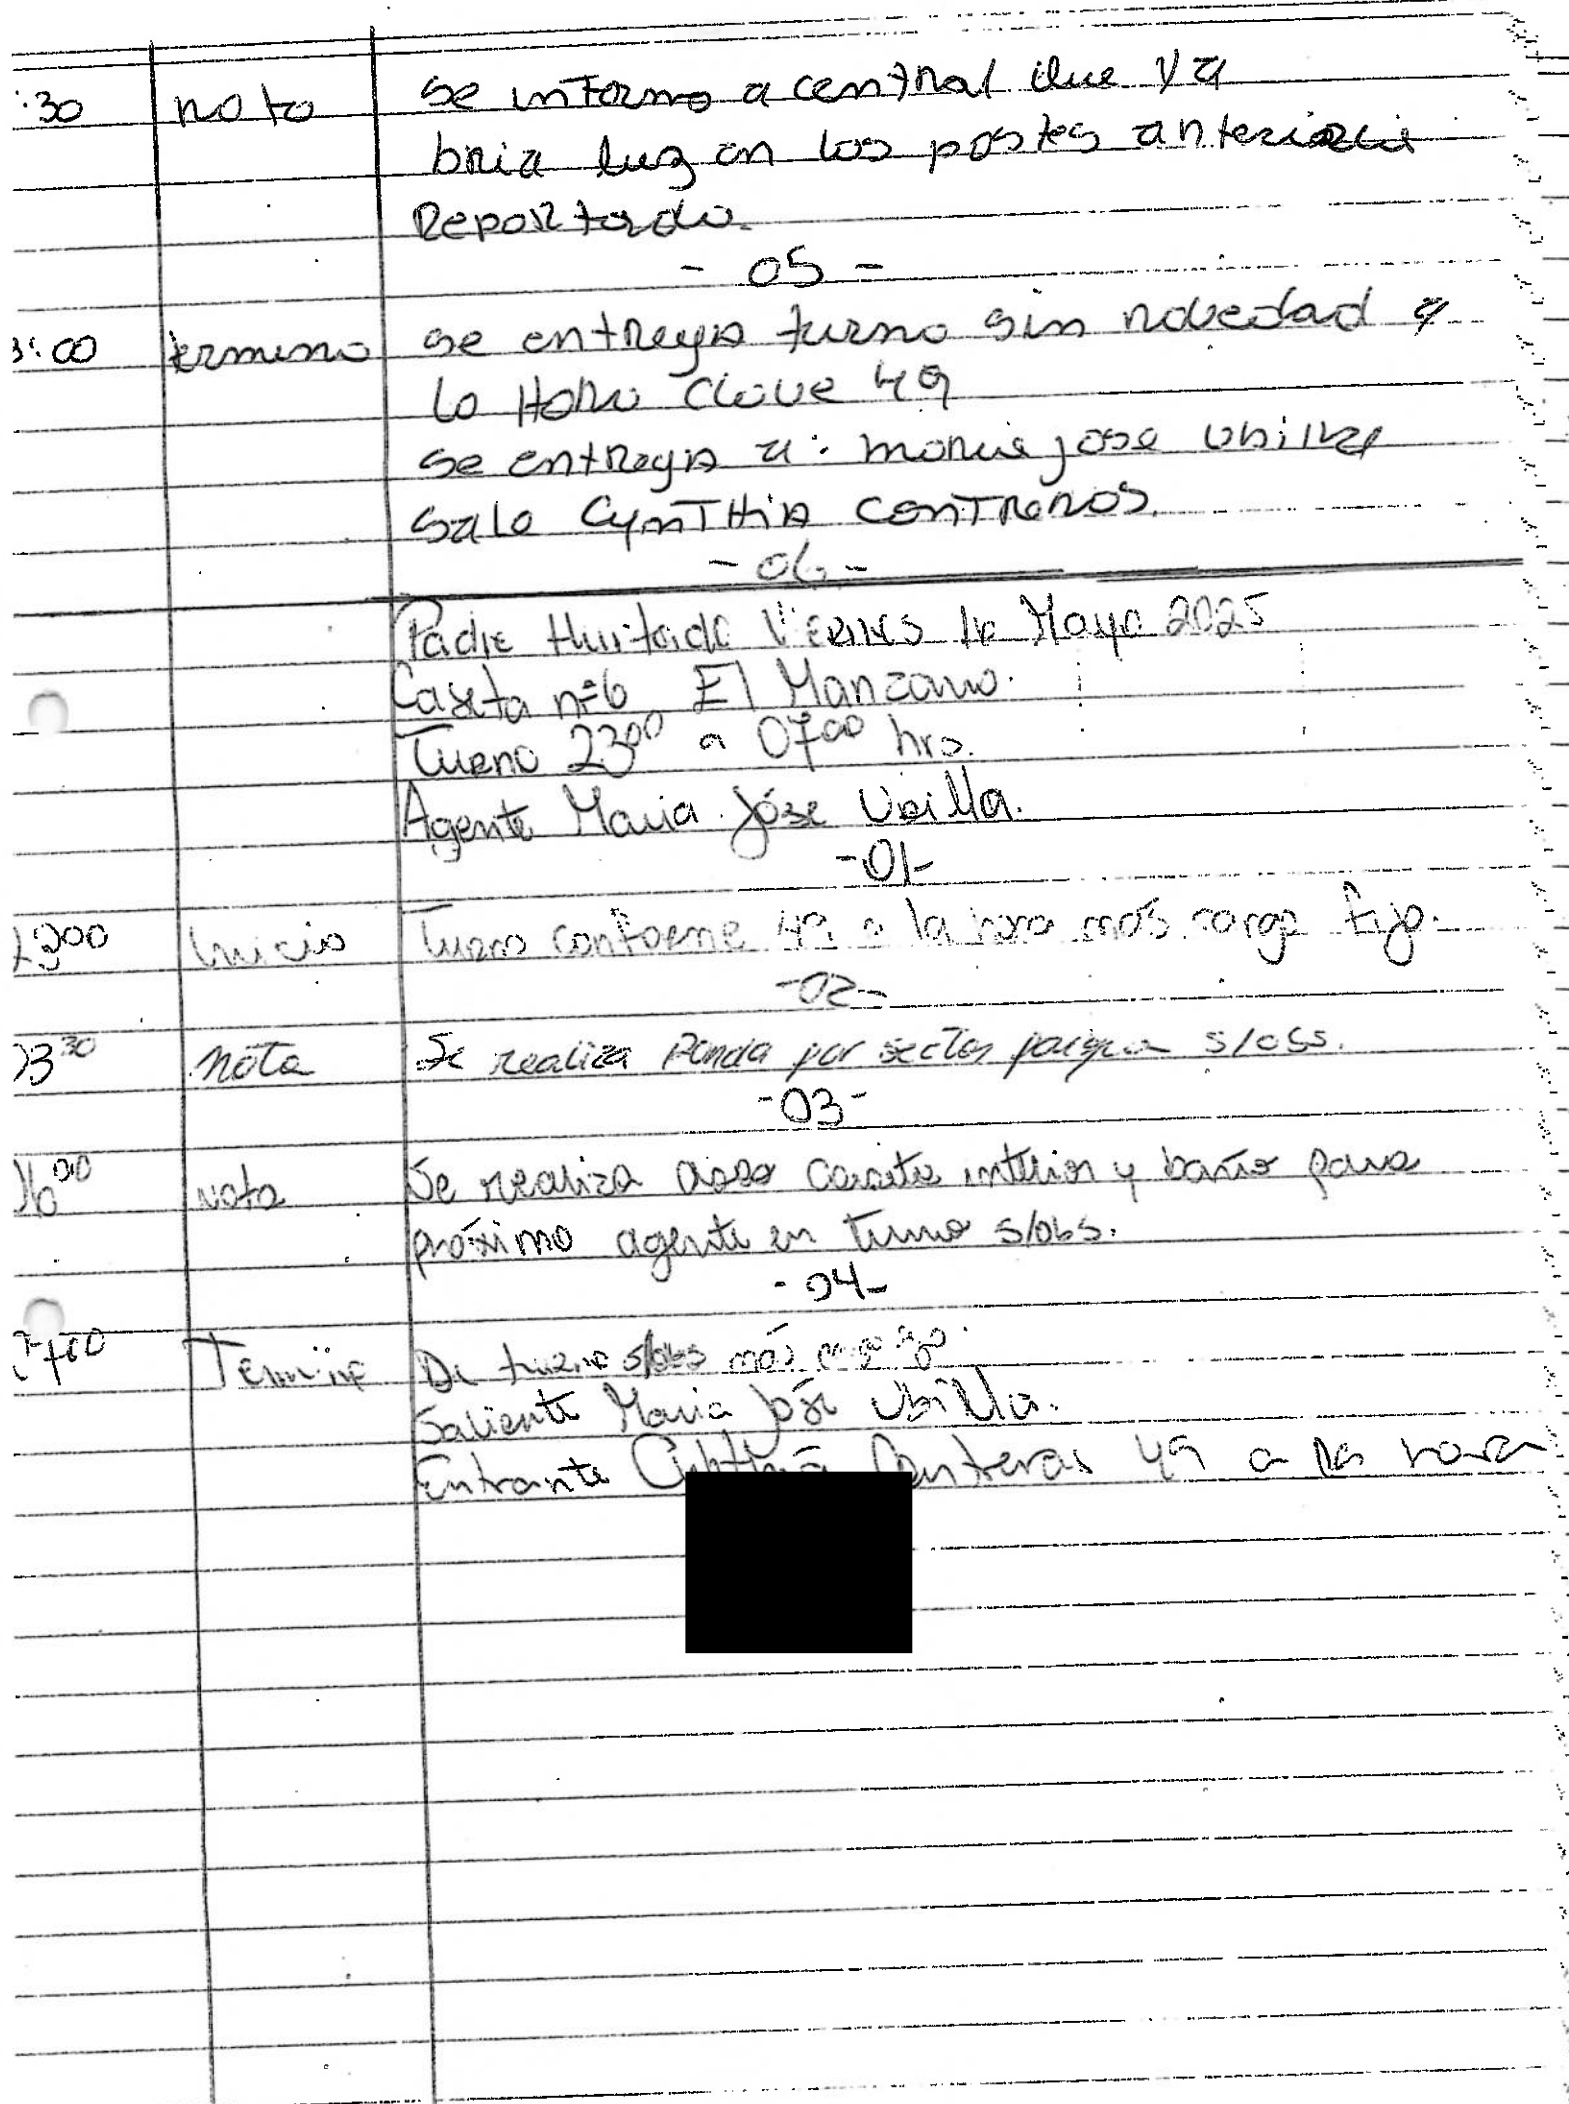 :30 nota se informo a central que ya
bria luz en los postes
Reportado.
- 05 -
3:00 termino se entrega turno sin novedad a
la Hora Clave 49
se entrega a: maria jose Ubilla
sale CynTHia CONTReRas.
- 06 -
Padre Hurtado Viernes 16 Mayo 2025
Caseta n=6 El Manzano.
Turno 23⁰⁰ a 07⁰⁰ hrs.
Agente Maria José Ubilla.
-01-
2300 Inicio Turno conforme 49 a la hora más cargo fijo.
-02-
23³⁰ nota Se realiza Ronda por sector s/obs.
-03-
06⁰⁰ nota Se realiza aseo caseta interior y baño para
próximo agente en turno s/obs.
-04-
0700 Termino De turno s/obs más cargo
Saliente Maria José Ubilla.
Entrante Contreras 49 a la hora